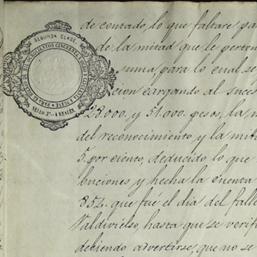 SEGUNDA CLASE
de contado, lo que faltare pa
de la mitad que le perten
suma, para lo cual se
cion cargando al suces
28.000, y 51.000 pesos, la m
del reconocimiento, y la mit
5. por ciento, deducido lo que
buciones y hecha la cuenta
852. que fué el dia del falle
Valdivielso, hasta que se verifi
debiendo advertirse, que no se